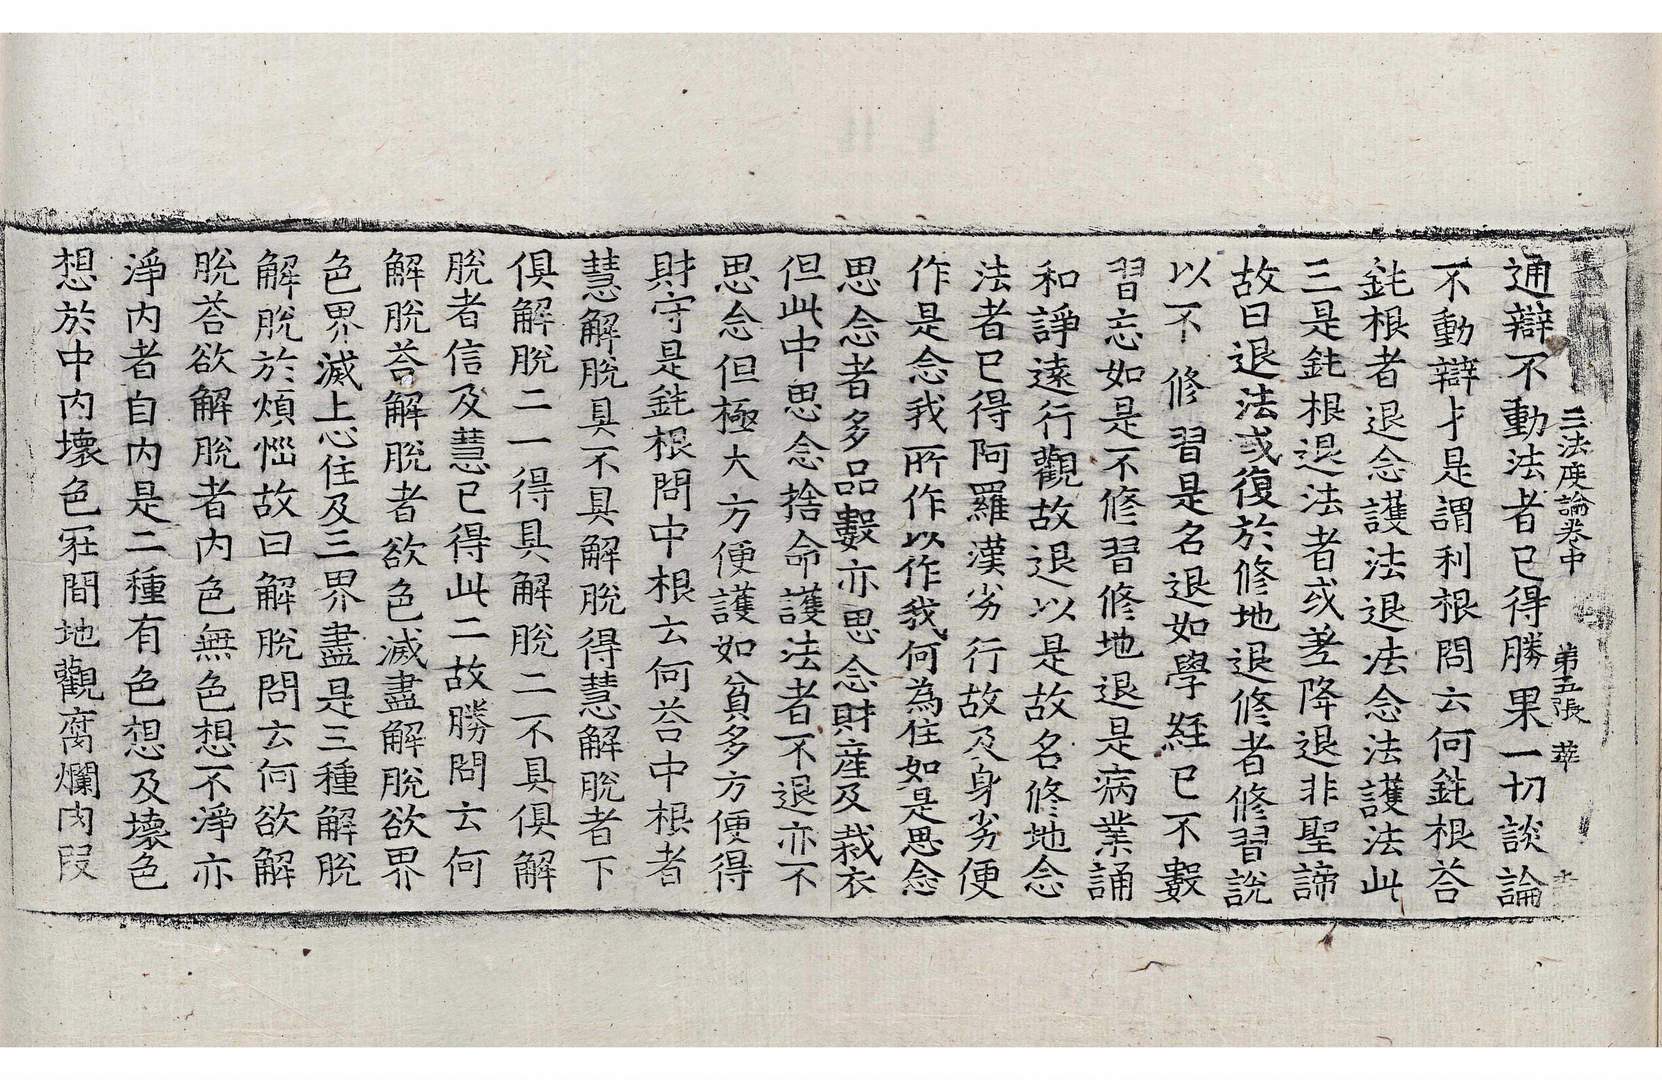 三法度論卷中 第五張 華
通辯不動法者已得勝果一切談論
不動辯才是謂利根問云何鈍根荅
鈍根者退念護法退法念法護法此
三是鈍根退法者或差降退非聖諦
故曰退法或復於修地退修者修習說
以不修習是名退如學経已不數
習忘如是不修習修地退是病業誦
和諍遠行觀故退以是故名修地念
法者已得阿羅漢劣行故及身劣便
作是念我所作以作我何為住如是思念
思念者多品數亦思念財產及裁衣
但此中思念捨命護法者不退亦不
思念但極大方便護如貧多方便得
財守是鈍根問中根云何荅中根者
慧解脫具不具解脫得慧解脫者下
俱解脫二一得具解脫二不具俱解
脫者信及慧已得此二故勝問云何
解脫荅解脫者欲色滅盡解脫欲界
色界滅上心住及三界盡是三種解脫
解脫於煩惱故曰解脫問云何欲解
脫荅欲解脫者內色無色想不淨亦
淨內者自內是二種有色想及壞色
想於中內壞色冡間地觀腐爛肉段